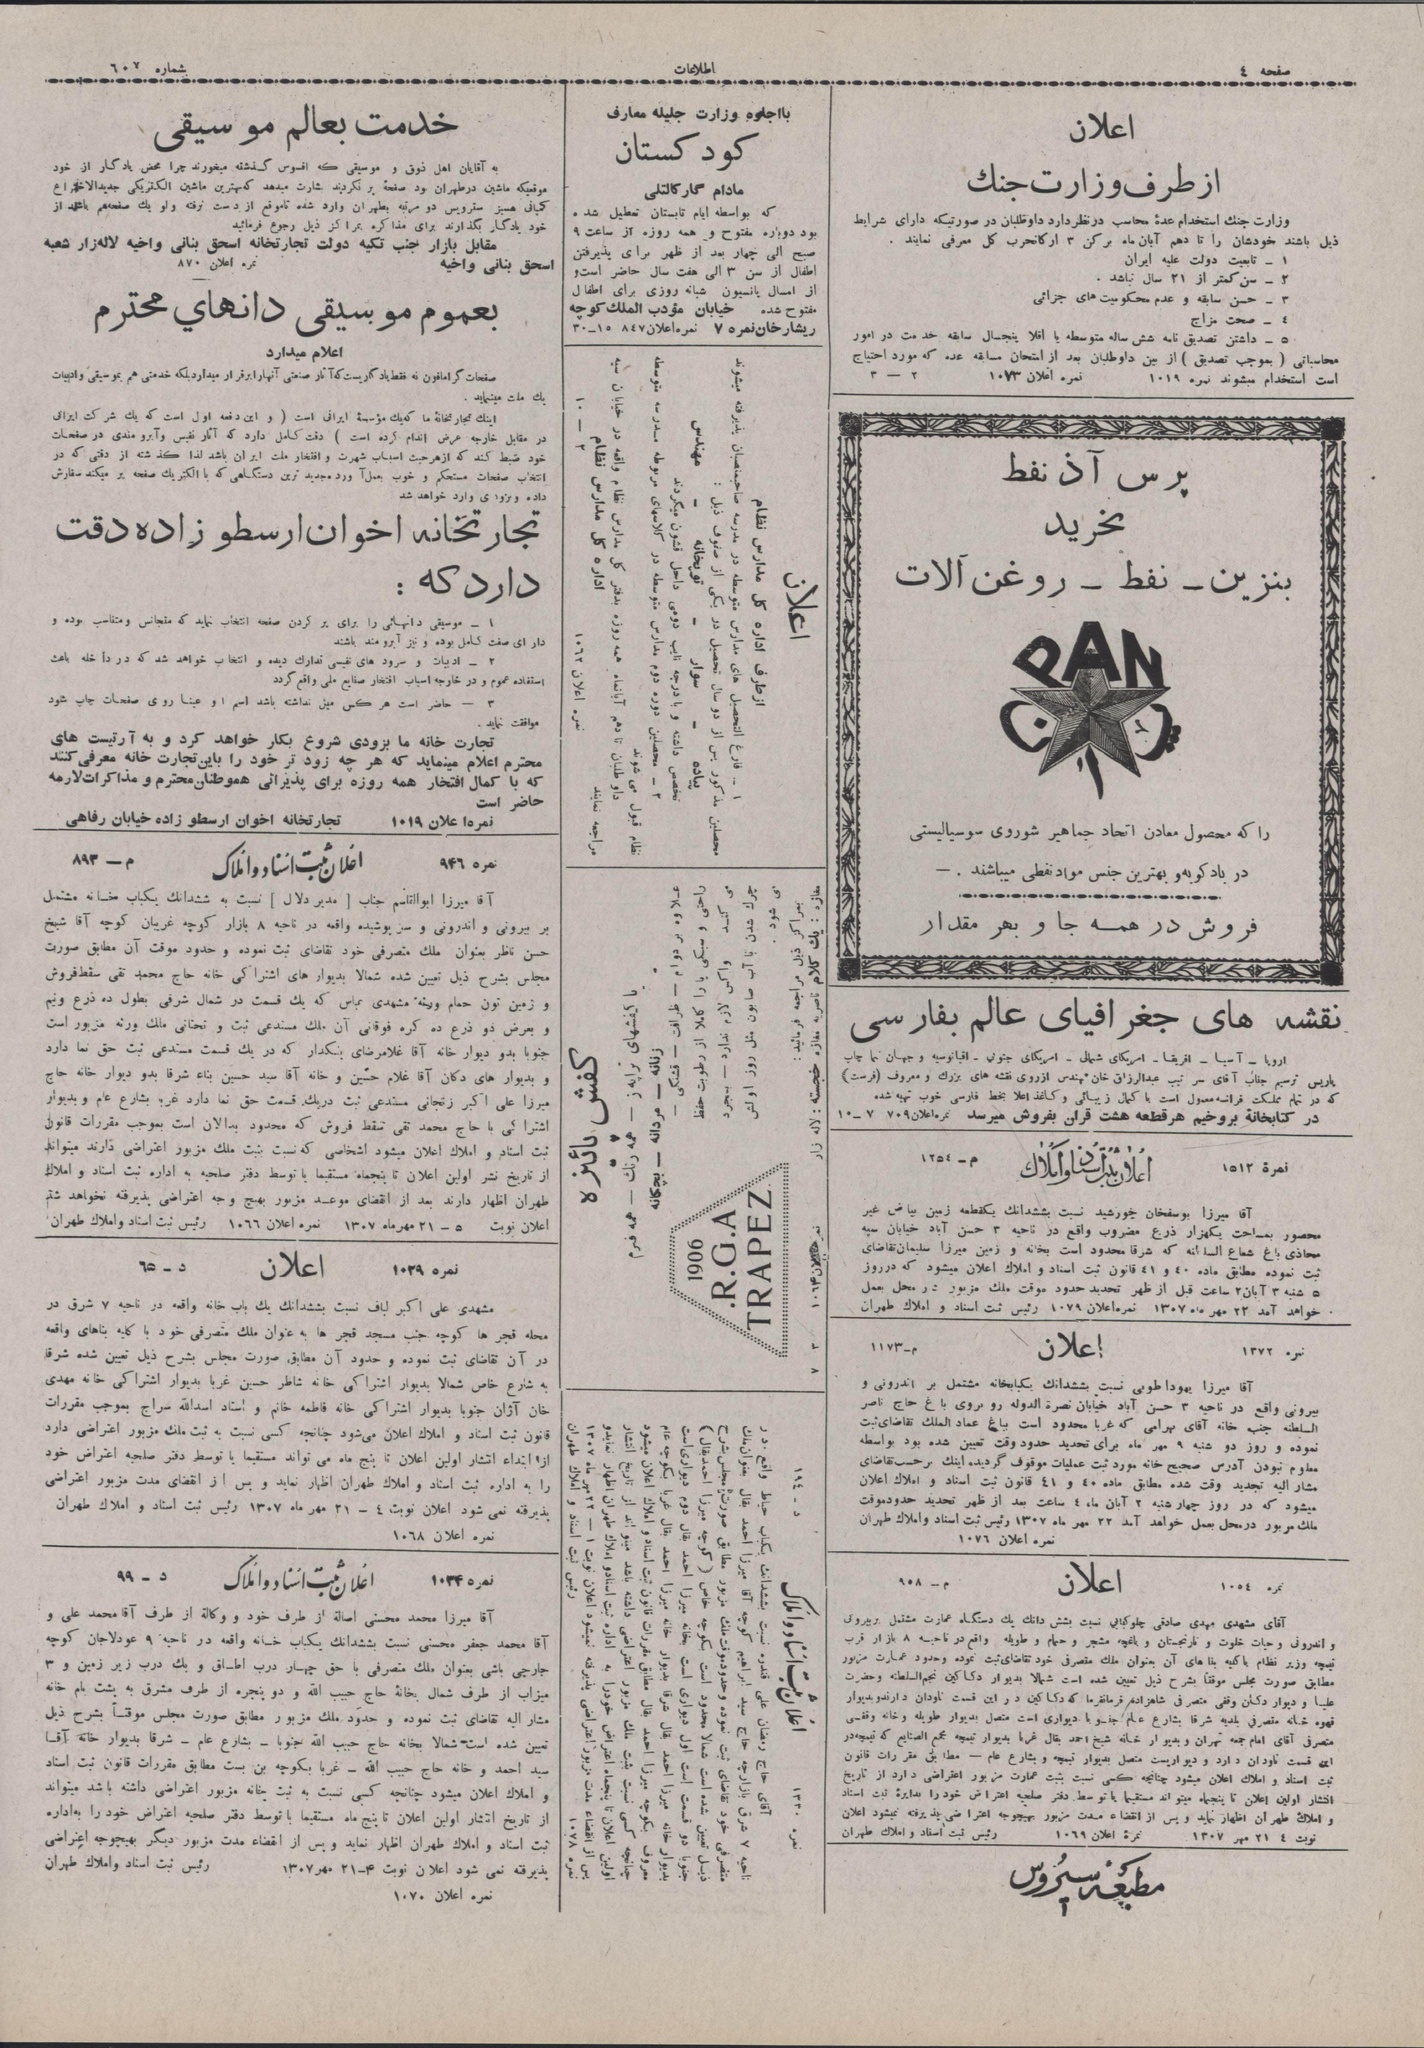 صفحه ٤
اطلاعات
شماره ٦٠٧
اعلان
از طرف وزارت جنك
وزارت جنك استخدام عدهٔ محاسب در نظر دارد داوطلبان در صورتیکه دارای شرایط
ذیل باشند خودشان را تا دهم آبان ماه برکن ٣ ارکانحرب کل معرفی نمایند .
١ ـ تابعیت دولت علیه ایران
٢ ـ سن کمتر از ٢١ سال نباشد .
٣ ـ حسن سابقه و عدم محکومیت های جزائی
٤ ـ صحت مزاج
٥ ـ داشتن تصدیق نامه شش ساله متوسطه یا اقلا پنجسال سابقه خدمت در امور
محاسباتی ( بموجب تصدیق ) از بین داوطلبان بعد از امتحان مسابقه عده که مورد احتیاج
است استخدام میشوند نمره ١٠١٩ نمره اعلان ١٠٧٣ ٢ ـ ٣
پرس آذ نفط
بخرید
بنزین ـ نفط ـ روغن آلات
PAN
را که محصول معادن اتحاد جماهیر شوروی سوسیالیستی
در بادکوبه و بهترین جنس مواد نفطی میباشند . ـ
فروش در همه جا و بهر مقدار
نقشه های جغرافیای عالم بفارسی
اروپا ـ آسیا ـ افریقا ـ امریکای شمالی ـ امریکای جنوبی ـ اقیانوسیه و جهان نما چاپ
پاریس ترسیم جناب آقای سرتیپ عبدالرزاق خان مهندس ازروی نقشه های بزرك و معروف (فرست)
که در تمام مملکت فرانسه معمول است با کمال زیبائی و کاغذ اعلا بخط فارسی خوب تهیه شده
در کتابخانهٔ بروخیم هر قطعه هشت قران بفروش میرسد نمره اعلان ٧٠٩ ٧ ـ ١٠
نمرة ١٥١٢ اعلان ثبت اسناد و املاك م ـ ١٢٥٤
آقا میرزا یوسفخان خورشید نسبت بششدانك یکقطعه زمین بیاض غیر
محصور بمساحت یکهزار ذرع مضروب واقع در ناحیه ٣ حسن آباد خیابان سپه
محاذی باغ شعاع السلطنه که شرقا محدود است بخانه و زمین میرزا سلیمان تقاضای
ثبت نموده مطابق ماده ٤٠ و ٤١ قانون ثبت اسناد و املاك اعلان میشود که در روز
٥ شنبه ٣ آبان ٢ ساعت قبل از ظهر تحدید حدود موقت ملك مزبور در محل بعمل
خواهد آمد ٢٢ مهر ماه ١٣٠٧ نمره اعلان ١٠٧٩ رئیس ثبت اسناد و املاك طهران
نمره ١٣٧٢ اعلان م ـ ١١٧٣
آقا میرزا یهودا طوبی نسبت بششدانك یکبابخانه مشتمل بر اندرونی و
بیرونی واقع در ناحیه ٣ حسن آباد خیابان نصرة الدوله روبروی باغ حاج ناصر
السلطنه جنب خانه آقای بهرامی که غربا محدود است بباغ عماد الملك تقاضای ثبت
نموده و روز دو شنبه ٩ مهر ماه برای تحدید حدود وقت تعیین شده بود بواسطه
معلوم نبودن آدرس صحیح خانه مورد ثبت عملیات موقوف گردیده اینك برحسب تقاضای
مشار الیه تجدید وقت شده مطابق ماده ٤٠ و ٤١ قانون ثبت اسناد و املاك اعلان
میشود که در روز چهار شنبه ٢ آبان ماه ٤ ساعت بعد از ظهر تحدید حدود موقت
ملك مزبور در محل بعمل خواهد آمد ٢٢ مهر ماه ١٣٠٧ رئیس ثبت اسناد و املاك طهران
نمره اعلان ١٠٧٦
نمره ١٠٥٤ اعلان م ـ ٩٥٨
آقای مشهدی مهدی صادقی چلوکبابی نسبت بشش دانك یك دستگاه عمارت مشتمل بر بیرونی
و اندرونی و حیات خلوت و نارنجستان و باغچه مشجر و حمام و طویله واقع در ناحیه ٨ بازار قرب
تیمچه وزیر نظام با کلیه بناهای آن بعنوان ملك متصرفی خود تقاضای ثبت نموده وحدود عمارت مزبور
مطابق صورت مجلس موقتاً بشرح ذیل تعیین شده است شمالا بدیوار دکاکین نجم السلطنه وحضرت
علیا و دیوار دکان وقفی متصرفی شاهزاده فرمانفرما که دکاکین در این قسمت ناودان دارند و بدیوار
قهوه خانه متصرفی بلدیه شرقا بشارع عام جنوبا دیواری است متصل بدیوار طویله و خانه وقفی
متصرفی آقای امام جمعه تهران و بدیوار خانه شیخ احمد بقال غربا بدیوار تیمچه مجمع الصنایع که تیمچه در
این قسمت ناودان دارد و دیواریست متصل بدیوار تیمچه و بشارع عام ـ مطابق مقررات قانون
ثبت اسناد و املاك اعلان میشود چنانچه کسی نسبت بثبت عمارت مزبور اعتراضی دارد از تاریخ
انتشار اولین اعلان تا پنجماه میتواند مستقیما یا توسط دفتر صلحیه اعتراض خود را بدایرهٔ ثبت اسناد
و املاك طهران اظهار نماید و پس از انقضاء مدت مزبور بهیچوجه اعتراضی پذیرفته نمیشود اعلان
نوبت ٤ ٢١ مهر ١٣٠٧ نمرهٔ اعلان ١٠٦٩ رئیس ثبت اسناد و املاك طهران
مطبعه سیروس
با اجازه وزارت جلیله معارف
کودکستان
مادام گارکالتلی
که بواسطه ایام تابستان تعطیل شده
بود دوباره مفتوح و همه روزه از ساعت ٩
صبح الی چهار بعد از ظهر برای پذیرفتن
اطفال از سن ٣ الی هفت سال حاضر است و
از امسال پانسیون شبانه روزی برای اطفال
مفتوح شده خیابان مؤدب الملك کوچه
ریشارخان نمره ٧ نمره اعلان ٨٤٧ ١٥ـ٣٠
اعلان
از طرف اداره کل مدارس نظام
١ ـ فارغ التحصیل های مدارس متوسطه در مدرسه صاحبمنصبان پذیرفته میشوند
محصلین مذکور پس از دو سال تحصیل در یکی از صنوف ذیل :
پیاده ـ سوار ـ توپخانه ـ مهندس
تخصص داشته و با درجه نایب دومی داخل قشون میگردند
٢ ـ محصلین دوره دوم مدارس متوسطه در کلاسهای مربوطه مدرسه متوسطه
نظام قبول می شوند
داوطلبان تا دهم آبانماه همه روزه بدفتر کل مدارس نظام واقعه در خیابان سپه
مراجعه نمایند اداره کل مدارس نظام
نمره اعلان ١٠٦٢ ٢ ـ ١٠
کفش پائیزه
زنانه ـ مردانه ـ بچگانه
R.G.A.
1906
TRAPEZ
بمراکز ذیل مراجعه فرمائید :
مغازه : یك کلام ناصریه مغازه خجسته : لاله زار
نمره ١٣٣٠ اعلان ثبت اسناد و املاك د ـ ١٩٤
آقای حاج رمضان علی قندره نسبت بششدانك یکباب حیاط واقع در
ناحیه ٧ شرق بازارچه حاج سید ابراهیم کوچه آقا میرزا احمد بقال بعنوان ملك
متصرفی خود تقاضای ثبت نموده وحدود موقت ملك مزبور مطابق صورت مجلس بشرح
ذیل تعیین شده است شمالا محدود است بکوچه خاص ( کوچه میرزا احمد بقال )
جنوبا دو قسمت است اول دیواری است بخانه میرزا احمد بقال دوم دیواری است
بدیوار خانه میرزا احمد بقال شرقا بدیوار خانه میرزا احمد بقال غربا بکوچه عام
معروف بکوچه میرزا احمد بقال مطابق مقررات قانون ثبت اسناد و املاك اعلان میشود
چنانچه کسی نسبت بثبت ملك مزبور اعتراضی داشته باشد میتواند از تاریخ انتشار
اولین اعلان تا پنجماه اعتراض خود را به اداره ثبت اسناد و املاك طهران اظهار نماید و
پس از انقضاء مدت مزبور اعتراضی پذیرفته نمیشود اعلان نوبت ١ ـ ٢٢ مهر ماه ١٣٠٧
نمره اعلان ١٠٧٨ رئیس ثبت اسناد و املاك طهران
خدمت بعالم موسیقی
به آقایان اهل ذوق و موسیقی که افسوس گذشته میخورند چرا محض یادگار از خود
موقعیکه ماشین در طهران بود صفحهٔ پر نکردند بشارت میدهد که بهترین ماشین الکتریکی جدیدالاختراع
کمپانی هسیز سترویس دو مرتبه بطهران وارد شده تا موقع از دست نرفته ولو یك صفحه هم باشد از
خود یادگار بگذارند برای مذاکره بمراکز ذیل رجوع فرمائید
مقابل بازار جنب تکیه دولت تجارتخانه اسحق بنانی واخیه لاله زار شعبه
اسحق بنانی واخیه نمره اعلان ٨٧٠
بعموم موسیقی دانهای محترم
اعلام میدارد
صفحات گرامافون نه فقط یادگاریست که آثار صنعتی آنها را برقرار میدارد بلکه خدمتی هم بموسیقی و ادبیات
یك ملت مینماید .
اینك تجارتخانهٔ ما که یك مؤسسهٔ ایرانی است ( و این دفعه اول است که یك شرکت ایرانی
در مقابل خارجه عرض اندام کرده است ) دقت کامل دارد که آثار نفیس و آبرومندی در صفحات
خود ضبط کند که از هر حیث اسباب شهرت و افتخار ملت ایران باشد لذا گذشته از دقتی که در
انتخاب صفحات مستحکم و خوب بعمل آورد مجدید ترین دستگاهی که با الکتریك صفحه پر میکند سفارش
داده و بزودی وارد خواهد شد
تجارتخانه اخوان ارسطو زاده دقت
دارد که :
١ ـ موسیقی دانهائی را برای پر کردن صفحه انتخاب نماید که متجانس و متناسب بوده و
دارای صفت کامل بوده و نیز آبرومند باشند
٢ ـ ادبیات و سرود های نفیسی تدارك دیده و انتخاب خواهد شد که در داخله باعث
استفاده عموم و در خارجه اسباب افتخار صنایع ملی واقع گردد
٣ ـ حاضر است هر کس میل نداشته باشد اسم او عینا روی صفحات چاپ شود
موافقت نماید .
تجارت خانه ما بزودی شروع بکار خواهد کرد و به آرتیست های
محترم اعلام مینماید که هر چه زود تر خود را باین تجارت خانه معرفی کنند
که با کمال افتخار همه روزه برای پذیرائی هموطنان محترم و مذاکرات لازمه
حاضر است
نمره اعلان ١٠١٩ تجارتخانه اخوان ارسطو زاده خیابان رفاهی
نمره ٩٤٦ اعلان ثبت اسناد و املاك م ـ ٨٩٣
آقا میرزا ابوالقاسم جناب [ مدیر دلال ] نسبت به ششدانك یکباب خانه مشتمل
بر بیرونی و اندرونی و سرپوشیده واقعه در ناحیه ٨ بازار کوچه غریبان کوچه آقا شیخ
حسن ناظر بعنوان ملك متصرفی خود تقاضای ثبت نموده و حدود موقت آن مطابق صورت
مجلس بشرح ذیل تعیین شده شمالا بدیوار های اشتراکی خانه حاج محمد تقی سقط فروش
و زمین تون حمام ورثه مشهدی عباس که یك قسمت در شمال شرقی بطول ده ذرع ونیم
و بعرض دو ذرع ده گره فوقانی آن ملك مستدعی ثبت و تحتانی ملك ورثه مزبور است
جنوبا بدو دیوار خانه آقا غلامرضای بنکدار که در یك قسمت مستدعی ثبت حق نما دارد
و بدیوار های دکان آقا غلام حسین و خانه آقا سید حسین بناء شرقا بدو دیوار خانه حاج
میرزا علی اکبر زنجانی مستدعی ثبت در یك قسمت حق نما دارد غربا بشارع عام و بدیوار
اشتراکی با حاج محمد تقی سقط فروش که محدود بدالان است بموجب مقررات قانون
ثبت اسناد و املاك اعلان میشود اشخاصی که نسبت بثبت ملك مزبور اعتراضی دارند میتوانند
از تاریخ نشر اولین اعلان تا پنجماه مستقیما یا توسط دفتر صلحیه به اداره ثبت اسناد و املاك
طهران اظهار دارند بعد از انقضای موعد مزبور بهیچ وجه اعتراضی پذیرفته نخواهد شد
اعلان نوبت ٥ ـ ٢١ مهر ماه ١٣٠٧ نمره اعلان ١٠٦٦ رئیس ثبت اسناد و املاك طهران
نمره ١٠٣٩ اعلان د ـ ٦٥
مشهدی علی اکبر لباف نسبت بششدانك یك باب خانه واقعه در ناحیه ٧ شرق در
محله قجر ها کوچه جنب مسجد قجر ها به عنوان ملك متصرفی خود با کلیه بناهای واقعه
در آن تقاضای ثبت نموده و حدود آن مطابق صورت مجلس بشرح ذیل تعیین شده شرقا
به شارع خاص شمالا بدیوار اشتراکی خانه شاطر حسین غربا بدیوار اشتراکی خانه مهدی
خان آژان جنوبا بدیوار اشتراکی خانه فاطمه خانم و استاد اسدالله سراج بموجب مقررات
قانون ثبت اسناد و املاك اعلان می‌شود چنانچه کسی نسبت به ثبت ملك مزبور اعتراضی دارد
از ابتداء انتشار اولین اعلان تا پنج ماه می تواند مستقیما یا توسط دفتر صلحیه اعتراض خود
را به اداره ثبت اسناد و املاك طهران اظهار نماید و پس از انقضای مدت مزبور اعتراضی
پذیرفته نمی شود اعلان نوبت ٤ ـ ٢١ مهر ماه ١٣٠٧ رئیس ثبت اسناد و املاك طهران
نمره اعلان ١٠٦٨
نمره ١٠٣٤ اعلان ثبت اسناد و املاك د ـ ٩٩
آقا میرزا محمد محسنی اصالة از طرف خود و وکالة از طرف آقا محمد علی و
آقا محمد جعفر محسنی نسبت بششدانك یکباب خانه واقعه در ناحیه ٩ عودلاجان کوچه
جارچی باشی بعنوان ملك متصرفی با حق چهار درب اطاق و یك درب زیر زمین و ٣
میزاب از طرف شمال بخانهٔ حاج حبیب الله و دو پنجره از طرف مشرق به پشت بام خانه
مشار الیه تقاضای ثبت نموده و حدود ملك مزبور مطابق صورت مجلس موقتاً بشرح ذیل
تعیین شده است شمالا بخانه حاج حبیب الله جنوبا ـ بشارع عام ـ شرقا بدیوار خانه آقا
سید احمد و خانه حاج حبیب الله ـ غربا بکوچه بن بست مطابق مقررات قانون ثبت اسناد
و املاك اعلان میشود چنانچه کسی نسبت به ثبت خانه مزبور اعتراضی داشته باشد میتواند
از تاریخ انتشار اولین اعلان تا پنج ماه مستقیما یا توسط دفتر صلحیه اعتراض خود را به اداره
ثبت اسناد و املاك طهران اظهار نماید و پس از انقضاء مدت مزبور دیگر بهیچوجه اعتراضی
پذیرفته نمی شود اعلان نوبت ٤ـ٢١ مهر ١٣٠٧ رئیس ثبت اسناد و املاك طهران
نمره اعلان ١٠٧٠